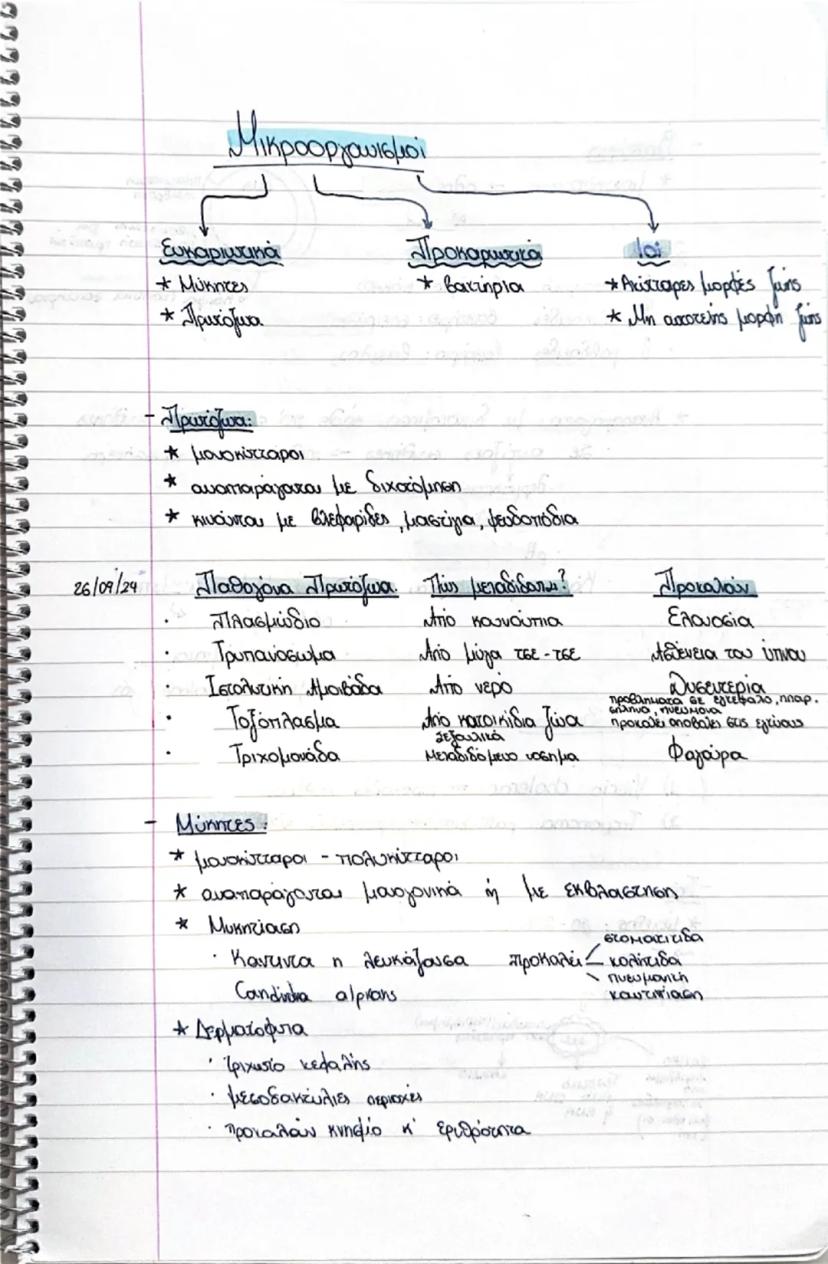 Μικροοργανισμοί
Ευκαριωτικά Προκαριωτικά Ιοί
* Μύκητες * Βακτήρια * Ακύτταρες μορφές ζωής
* Πρωτόζωα * Μη αυτοτελής μορφή ζωής
- Πρωτόζωα:
* μονοκύτταροι
* αναπαράγονται με διχοτόμηση
* κινούνται με βλεφαρίδες, μαστίγια, ψευδοπόδια
26/09/24 Παθογόνα Πρωτόζωα Πώς μεταδίδεται? Προκαλούν
· Πλασμώδιο Από κουνούπια Ελονοσία
· Τρυπανόσωμα Από μύγα τσε-τσε Ασθένεια του ύπνου
· Ιστολυτική Αμοιβάδα Από νερό Δυσεντερία
προβλήματα σε εγκέφαλο, ηπαρ,
σπλήνα, πνεύμονα
· Τοξόπλασμα Από κατοικίδια ζώα προκαλεί αποβολές στις εγκύους
σεξουαλικά
· Τριχομονάδα μεταδιδόμενο νόσημα Φαγούρα
- Μύκητες:
* μονοκύτταροι - πολυκύτταροι
* αναπαράγονται μονογονικά ή με εκβλάστηση
* Μυκητίαση
στοματίτιδα
· Κάντιντα η λευκάζουσα προκαλεί κολπίτιδα
πνευμονική
Candida καντιτίαση
* Δερματόφυτα
· τριχωτό κεφαλής
· μεσοδακτύλιες περιοχές
· προκαλούν κνησμό κ' ερυθρότητα